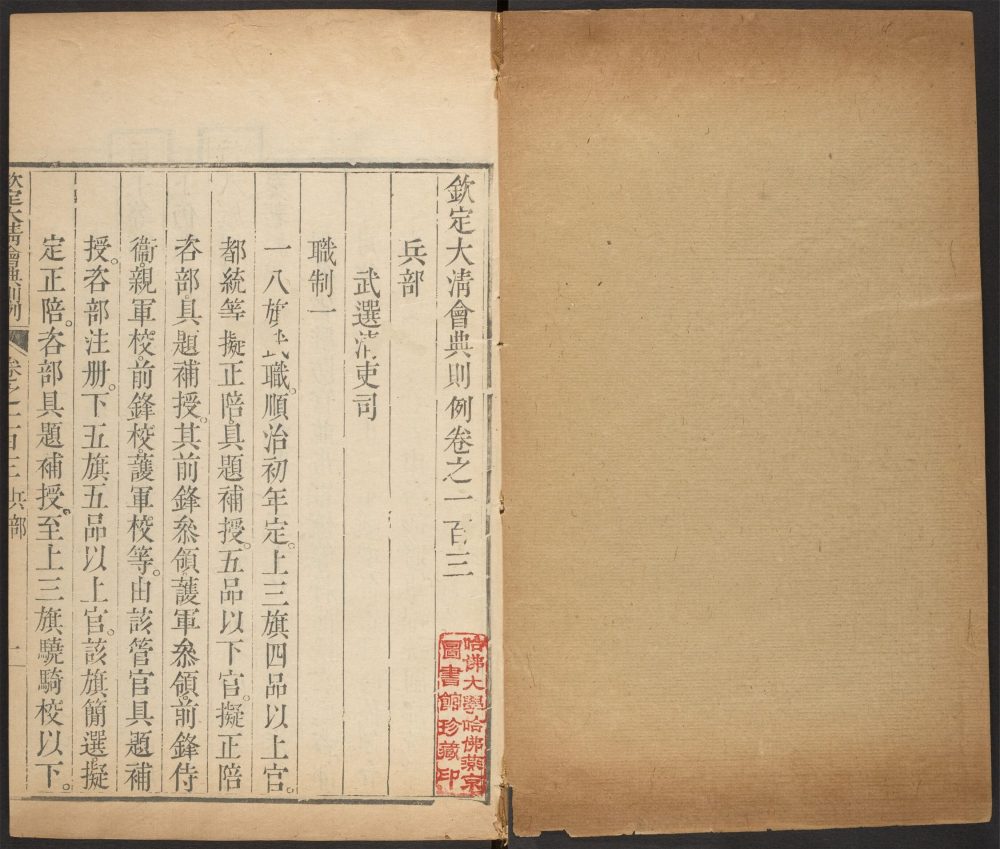 欽定大淸會典則例卷之一百三
兵部
武選淸吏司
職制一
一八旗武職。順治初年定。上三旗四品以上官。
都統等擬正陪。具題補授。五品以下官。擬正陪
咨部具題補授。其前鋒叅領。護軍叅領。前鋒侍
衞。親軍校。前鋒校。護軍校等。由該管官具題補
授。咨部注册。下五旗五品以上官。該旗簡選。擬
定正陪。咨部具題補授。至上三旗驍騎校以下。
欽定大淸會典則例
卷之一百三兵部
一
哈佛大學哈佛燕京
圖書館珍藏印